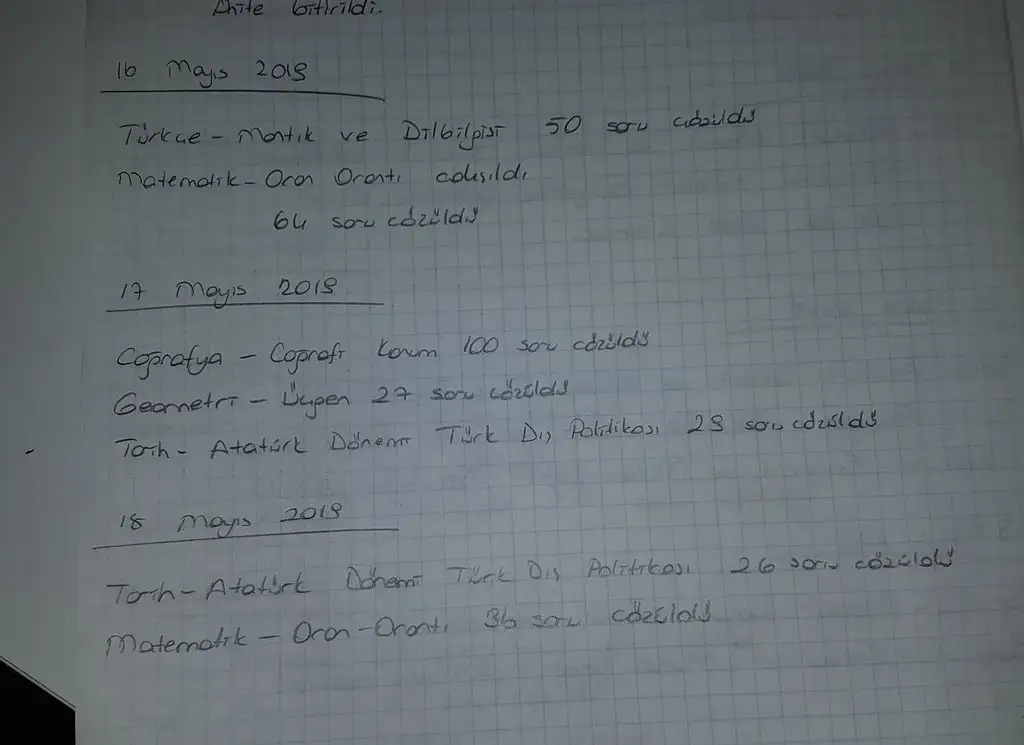 bitirildi.
16 Mayıs 2019
Türkçe - Mantık ve Dilbilgisi 50 soru çözüldü
Matematik - Oran Orantı çalışıldı
64 soru çözüldü
17 Mayıs 2019
Coğrafya - Coğrafi Konum 100 soru çözüldü
Geometri - Üçgen 27 soru çözüldü
Tarih - Atatürk Dönemi Türk Dış Politikası 29 soru çözüldü
18 Mayıs 2019
Tarih - Atatürk Dönemi Türk Dış Politikası 26 soru çözüldü
Matematik - Oran - Orantı 36 soru çözüldü